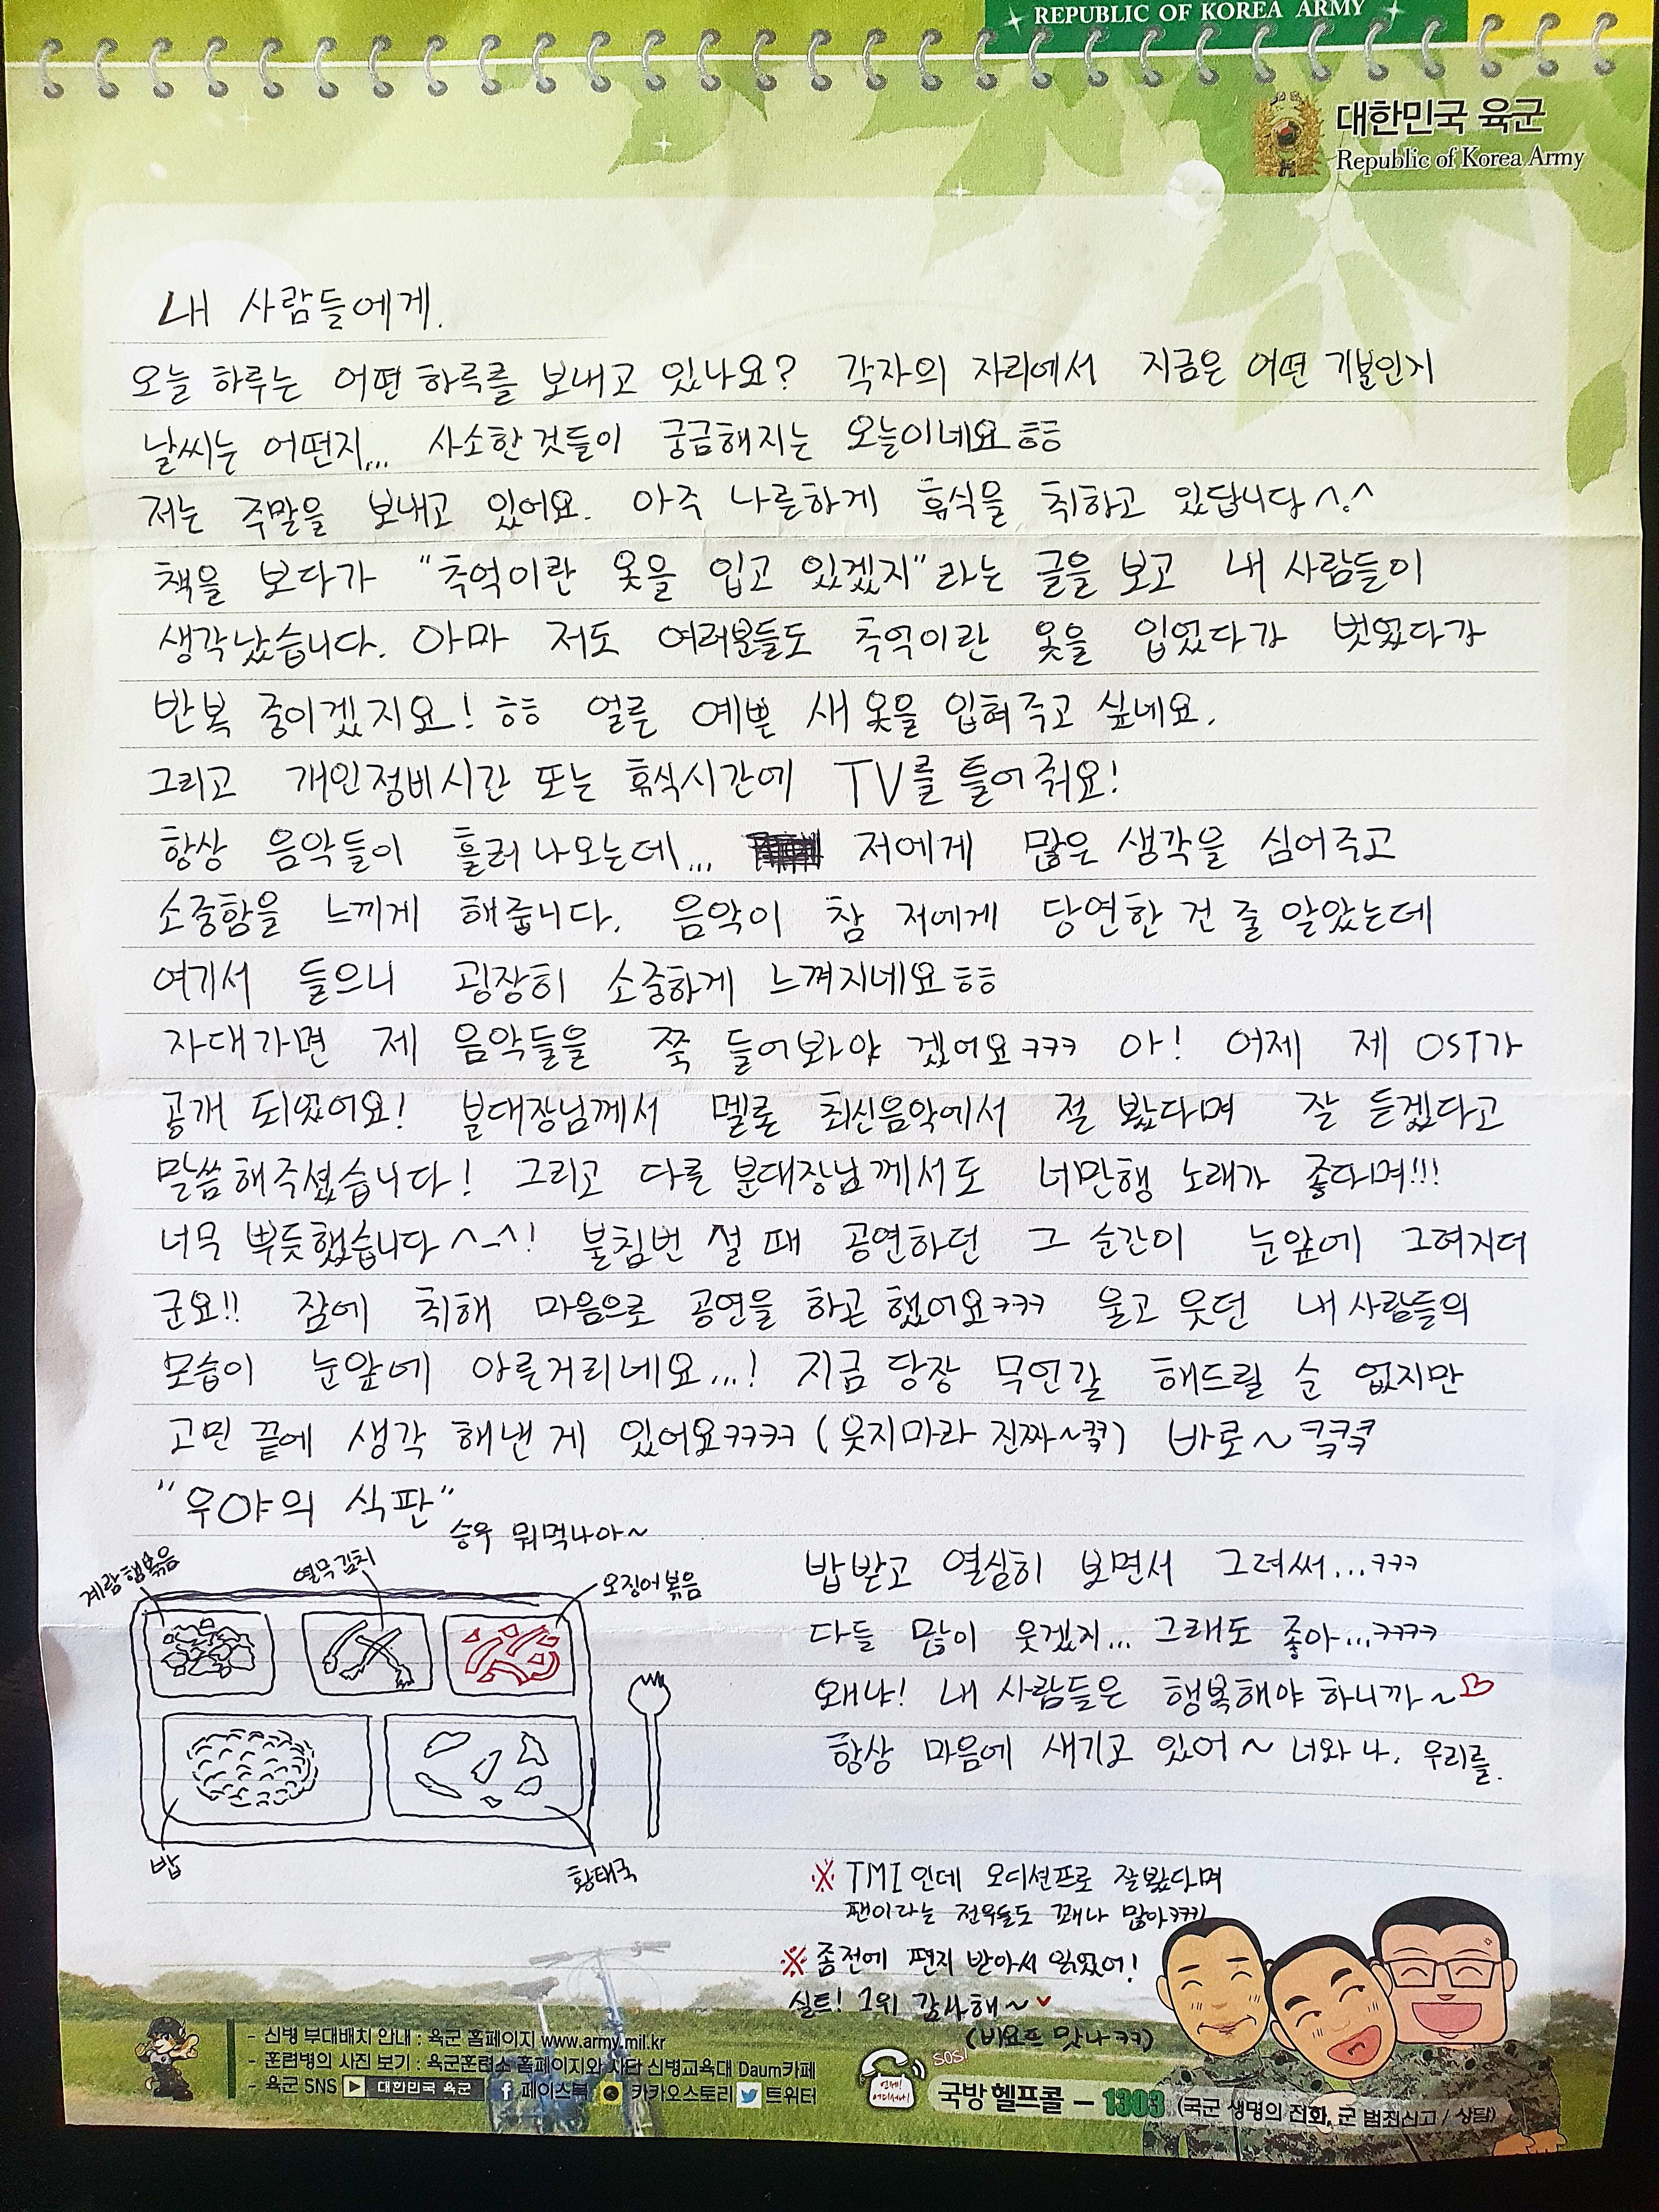 REPUBLIC OF KOREA ARMY
대한민국 육군
Republic of Korea Army
내 사람들에게.
오늘 하루는 어떤 하루를 보내고 있나요? 각자의 자리에서 지금은 어떤 기분인지
날씨는 어떤지... 사소한것들이 궁금해지는 오늘이네요ㅎㅎ
저는 주말을 보내고 있어요. 아주 나른하게 휴식을 취하고 있답니다^.^
책을 보다가 "추억이란 옷을 입고 있겠지"라는 글을 보고 내 사람들이
생각났습니다. 아마 저도 여러분들도 추억이란 옷을 입었다가 벗었다가
반복 중이겠지요! ㅎㅎ 얼른 예쁜 새 옷을 입혀주고 싶네요.
그리고 개인정비시간 또는 휴식시간에 TV를 틀어줘요!
항상 음악들이 흘러나오는데... 저에게 많은 생각을 심어주고
소중함을 느끼게 해줍니다. 음악이 참 저에게 당연한 건 줄 알았는데
여기서 들으니 굉장히 소중하게 느껴지네요ㅎㅎ
자대가면 제 음악들을 쭉 들어봐야 겠어요ㅋㅋㅋ 아! 어제 제 OST가
공개 되었어요! 분대장님께서 멜론 최신음악에서 절 봤다며 잘 듣겠다고
말씀해주셨습니다! 그리고 다른 분대장님께서도 너만행 노래가 좋다며!!!
너무 뿌듯했습니다^-^! 불침번 설 때 공연하던 그 순간이 눈앞에 그려지더
군요!! 잠에 취해 마음으로 공연을 하곤 했어요ㅋㅋㅋ 울고 웃던 내 사람들의
모습이 눈앞에 아른거리네요...! 지금 당장 무언갈 해드릴 순 없지만
고민 끝에 생각 해낸 게 있어요ㅋㅋㅋㅋ (웃지마라 진짜~ㅋㅋ) 바로~
"우야의 식판"
승우 뭐먹나아~
계란햄볶음
열무김치
오징어볶음
밥
황태국
밥받고 열심히 보면서 그려써...ㅋㅋㅋ
다들 많이 웃겠지... 그래도 좋아...ㅋㅋㅋㅋ
왜냐! 내 사람들은 행복해야 하니까~♡
항상 마음에 새기고 있어~ 너와 나. 우리를.
※ TMI인데 오디션프로 잘봤다며
팬이라는 전우들도 꽤나 많아ㅋㅋㅋ
※ 좀전에 편지 받아서 읽었어!
실트! 1위 감사해~♥
(비요뜨 맛나ㅋㅋ)
- 신병 부대배치 안내 : 육군 홈페이지 www.army.mil.kr
- 훈련병의 사진 보기 : 육군훈련소 홈페이지와 사단 신병교육대 Daum카페
- 육군 SNS 대한민국 육군 페이스북 카카오스토리 트위터
SOS!
언제! 어디서나!
국방헬프콜 - 1303 (국군 생명의 전화, 군 범죄신고 / 상담)